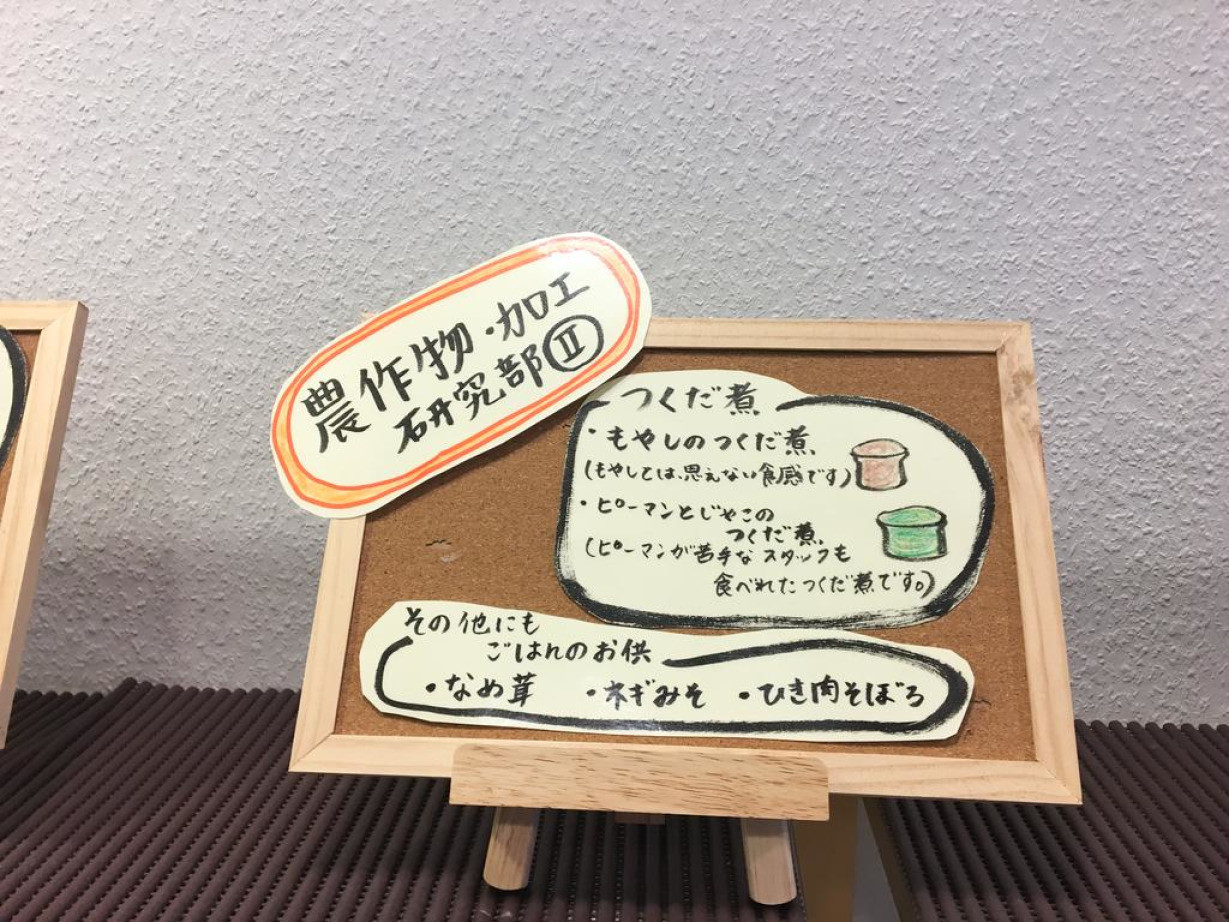 農作物・加工
研究部Ⅱ
つくだ煮
・もやしのつくだ煮
(もやしては、思えない食感です)
・ピーマンとじゃこの
つくだ煮
(ピーマンが苦手なスタッフも
食べれたつくだ煮です。)
その他にも
ごはんのお供
・なめ茸 ・ネギみそ ・ひき肉そぼろ